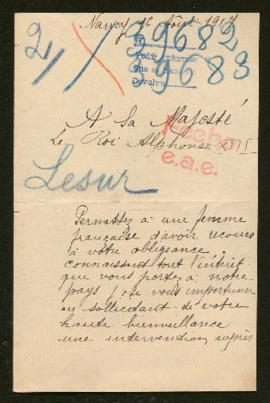 Nancy, 16 Août 1917
2/ 39682
39683
Para informar
Devolver
A Sa Majesté
Le Roi Alphonse XIII
Hecho
e.a.e.
Lesur
Permettez à une femme
française d'avoir recours
à votre obligeance
connaissant tout l'intérêt
que vous portez à notre
pays, ose vous importuner
en sollicitant de votre
haute bienveillance
une intervention auprès